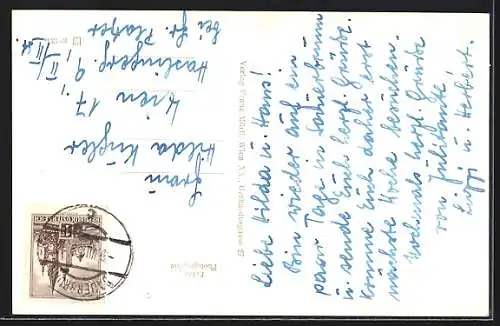 Liebe Hilda u. Hans!
Bin wieder auf ein
paar Tage in Sauerbrunn
u. sende Euch herzl. Grüße.
Komme Euch daher erst
nächste Woche besuchen.
Nochmals herzl. Grüße
von Julitante
u. Herbert.
Frau
Hilda Kugler
Wien 17.,
Haslingerg. 9,
II./
bei Fr. Platzer
Verlag Franz Mörtl, Wien XX., Gerhardusgasse 27
Echte
Photographie
REPUBLIK ÖSTERREICH